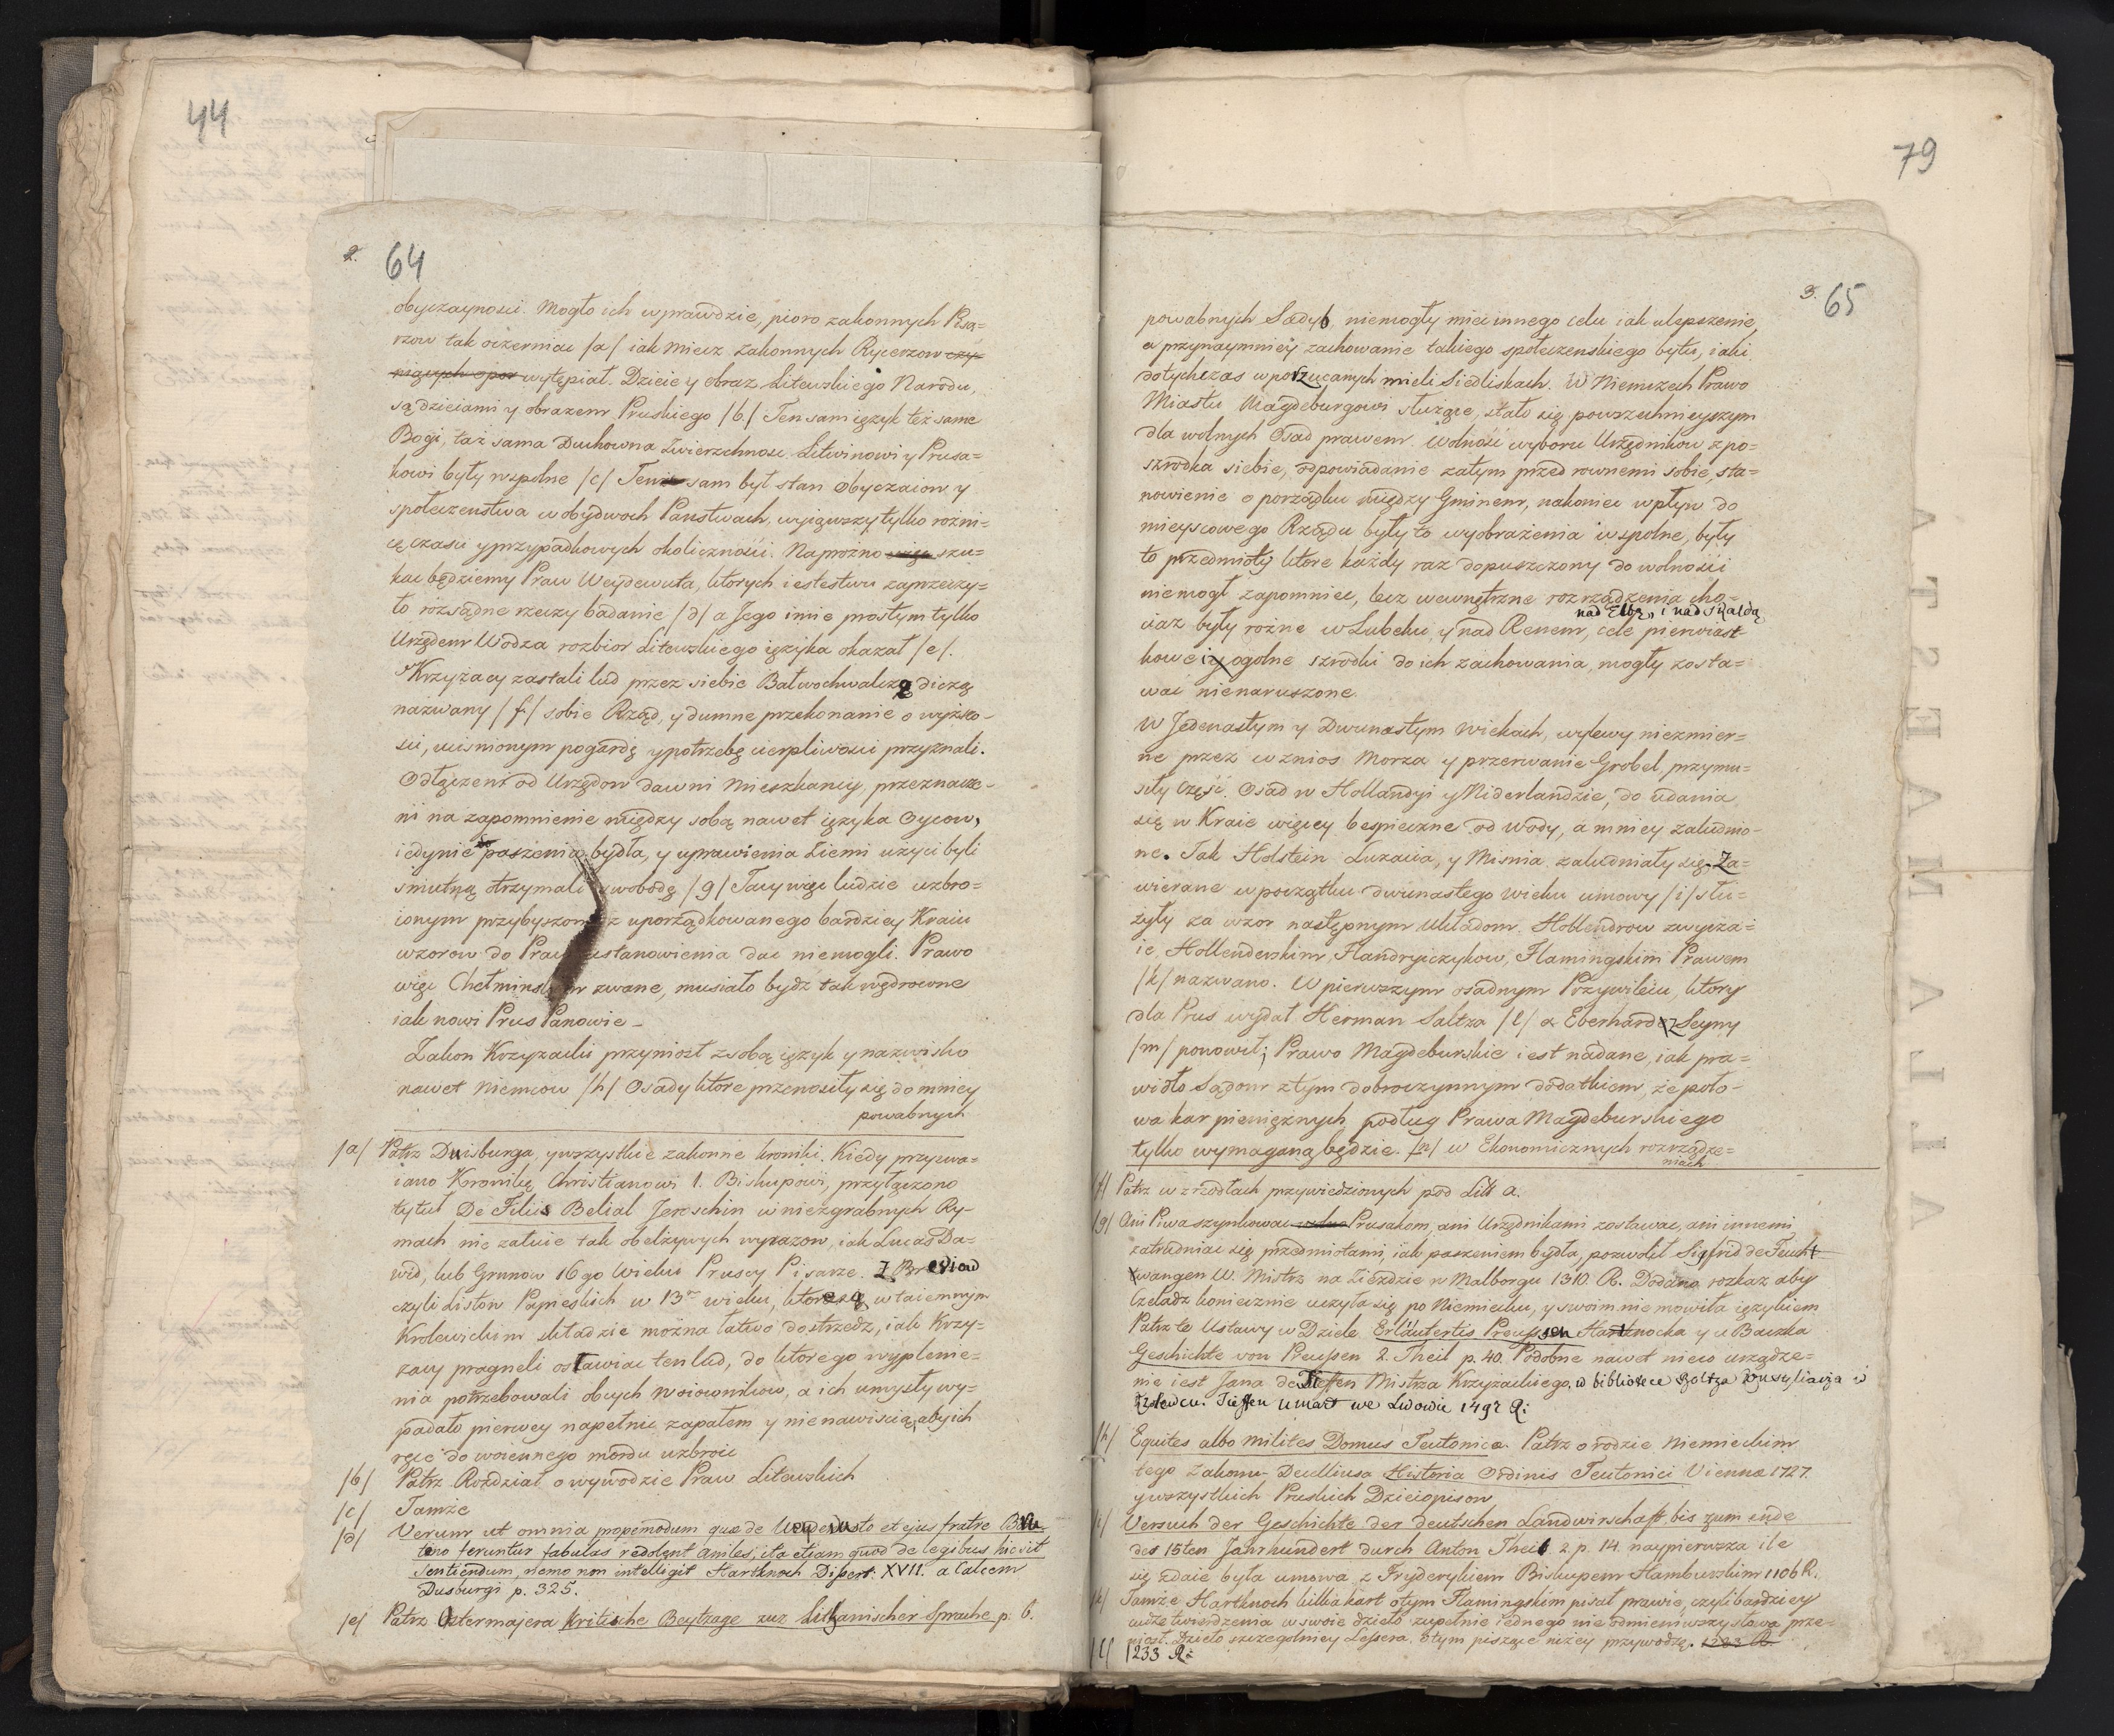 44
2. 64
obyczaynosci. Mogło ich wprawdzie, pioro zakonnych Pisa=
rzow tak oczerniac /a/ iak miecz zakonnych Rycerzow czy=
niących opor wytępiał. Dzicie y obraz Litewskiego Narodu,
są dzieiami y obrazem Pruskiego /b/ Ten sam ięzyk też same
Bogi, taż sama Duchowna Zwierzchnosc Litwinowi y Prusa=
kowi były wspolne /c/ Tenże sam był stan obyczaiow y
społeczenstwa w obydwoch Panstwach, wyiąwszy tylko rożni=
cę czasu y przypadkowych okolicznośći. Naprożno więc szu=
kac będziemy Praw Weydewuta, ktorych iestestwu zaprzeczy=
ło rozsądne rzeczy badanie /d/ a Jego imie prostym tylko
Urzędem Wodza rozbior Litewskiego ięzyka okazał /e/.
Krzyżacy zastali lud przez siebie Bałwochwalczą dziczą
nazwany /f/ sobie Rząd, y dumne przekonanie o wyższo-
sci, ucisnionym pogardę y potrzebę cierpliwosci przyznali.
Odłączeni od Urzędow dawni Mieszkancy, przeznacze-
ni na zapomnienie między sobą nawet ięzyka Oycow,
iedynie do paszenia bydła, y uprawienia Ziemi użyci byli
smutną otrzymali swobodę /g/ Tacy więc ludzie uzbro=
ionym przybyszom z uporządkowanego bardziey Kraiu
wzorow do Praw ustanowienia dac niemogli. Prawo
więc Chełminskim zwane, musiało bydź tak wędrowne
iak nowi Prus Panowie –
Zakon Krzyzacki przyniosł z sobą ięzyk y nazwisko
nawet Niemcow /h/ Osady ktore przenosiły się do mniey
powabnych
/a/ Patrz Duisburga, y wszystkie zakonne kroniki. Kiedy przyswa=
iano Kronikę Christianowi 1. Biskupowi, przyłączono
tytuł De Filiis Belial Jeroschin w niezgrabnych Ry-
mach nie żałuie tak obelżywych wyrazow, iak Lucas Da=
wid, lub Grunow 16go Wieku Pruscy Pisarze. Z Breviow
czyli Listow Papieskich w 13m wieku, ktore są w taiemnym
Krolewickim składzie można łatwo dostrzedz, iak Krzy=
zacy pragneli osławiac ten lud, do ktorego wyplenie=
nia potrzebowali obcych Woiownikow, a ich umysły wy=
padało pierwey napełnic zapałem y nienawiscią, aby ich
ręce do woiennego mordu uzbroic
/b/ Patrz Rozdział o wywodzie Praw Litewskich
/c/ Tamże
/d/ Verum ut omnia propemodum quæ de Weydewuto et ejus fratre Bru=
teno feruntur fabulas redolent aniles, ita etiam quod de legibus hic sit
sentiendum, nemo non intelligit Hartknoch Dissert: XVII. a Calcem
Dusburgi p. 325.
/e/ Patrz Ostermajera Kritische Beytrage zur Littauischer Sprache p. 6.
79
3. 65
powabnych Sadyb, niemogły miec innego celu iak ulepszenie,
a przynaymniey zachowanie takiego społeczenskiego bytu, iaki
dotychczas w porzucanych mieli Siedliskach. W Niemczech Prawo
Miastu Magdeburgowi służące, stało się powszechnieyszym
dla wolnych Osad prawem. Wolność wyboru Urzędnikow z po=
szrodka siebie, odpowiadanie zatym przed rownemi sobie, sta=
nowienie o porządku między Gminem, nakoniec wpływ do
mieyscowego Rządu były to wyobrażenia wspolne, były
to przedmioty ktore każdy raz dopuszczony do wolności
niemogł zapomniec, lecz wewnętrzne rozrządzenia cho=
nad Elbą, i nad Skaldą
ciaż były rożne w Lubeku, y nad Renem, cele pierwiast
kowe i y ogolne szrodki do ich zachowania, mogły zosta=
wac nienaruszone.
W Jedenastym y Dwunastym Wiekach, wylewy niezmier=
ne przez wznios Morza y przerwanie Grobel, przymu=
siły Część Osad w Hollandyi y Niderlandzie, do udania
się w Kraie więcey bespieczne od wody, a mniey zaludnio-
ne. Tak Holstein Luzacia, y Misnia zaludniały się. Za=
wierane w początku dwunastego wieku umowy /i/ słu=
żyły za wzor następnym układom. Hollendrow zwycza=
ie, Hollenderskim, Flandryiczykow, Flamingskim Prawem
/k/ nazwano. W pierwszym osadnym Przywileiu, ktory
dla Prus wydał Herman Saltza /l/ a Eberhard z Seyny
/m/ ponowił; Prawo Magdeburskie iest nadane, iak pra=
widło Sądom z tym dobroczynnym dodatkiem, że poło-
wa kar pieniężnych podług Prawa Magdeburskiego
tylko wymaganą będzie. /n/ w Ekonomicznych rozrządze=
niach
/f/ Patrz w zrzodłach przywiedzionych pod Litt a.
/g/ Ani Piwa szynkowac Prusakom, ani Urzędnikami zostawac, ani innemi
zatrudniac się przedmiotami, iak paszeniem bydła, pozwolił Sigfrid de Feucht
wangen W. Mistrz na Zieżdzie w Malborgu 1310 R. Dodano rozkaz aby
Czeladz koniecznie uczyła się po Niemiecku, y swoim nie mowiła ięzykiem
Patrz te Ustawy w Dziele Erläutertes Preussen Hartknocka y u Baczka
Geschichte von Preussen 2. Theil p. 40. Podobne nawet nieco urządze=
nie iest Jana de Tieffen Mistrza Krzyżackiego, w bibliotece
Tieffen umarł we Lwowie 1497 R:
/h/ Equites albo milites Domus Teutonicæ. Patrz o rodzie Niemieckim
tego Zakonu Duelliusa Historia Ordinis Teutonici Viennæ 1727.
y wszystkich Pruskich Dzieiopisow
/i/ Versuch der Geschichte der deutschen Landwirschaft bis zum ende
des 15ten Jahrhundert durch Anton Theil 2. p. 14. naypierwsza ile
się zdaie była umowa z Fryderykiem Biskupem Hamburskim 1106 R.
/k/ Tamże Hartknoch kilkakart o tym Flamingskim pisał prawie, czyli bardziey
cudze twierdzenia w swoie dzieło zupełnie iednego nie odmieniwszy słowa prze=
niosł. Dzieło szczegolniey Lessera o tym piszące niżey przywodzę. 1233 R.
/l/ 1233 R: